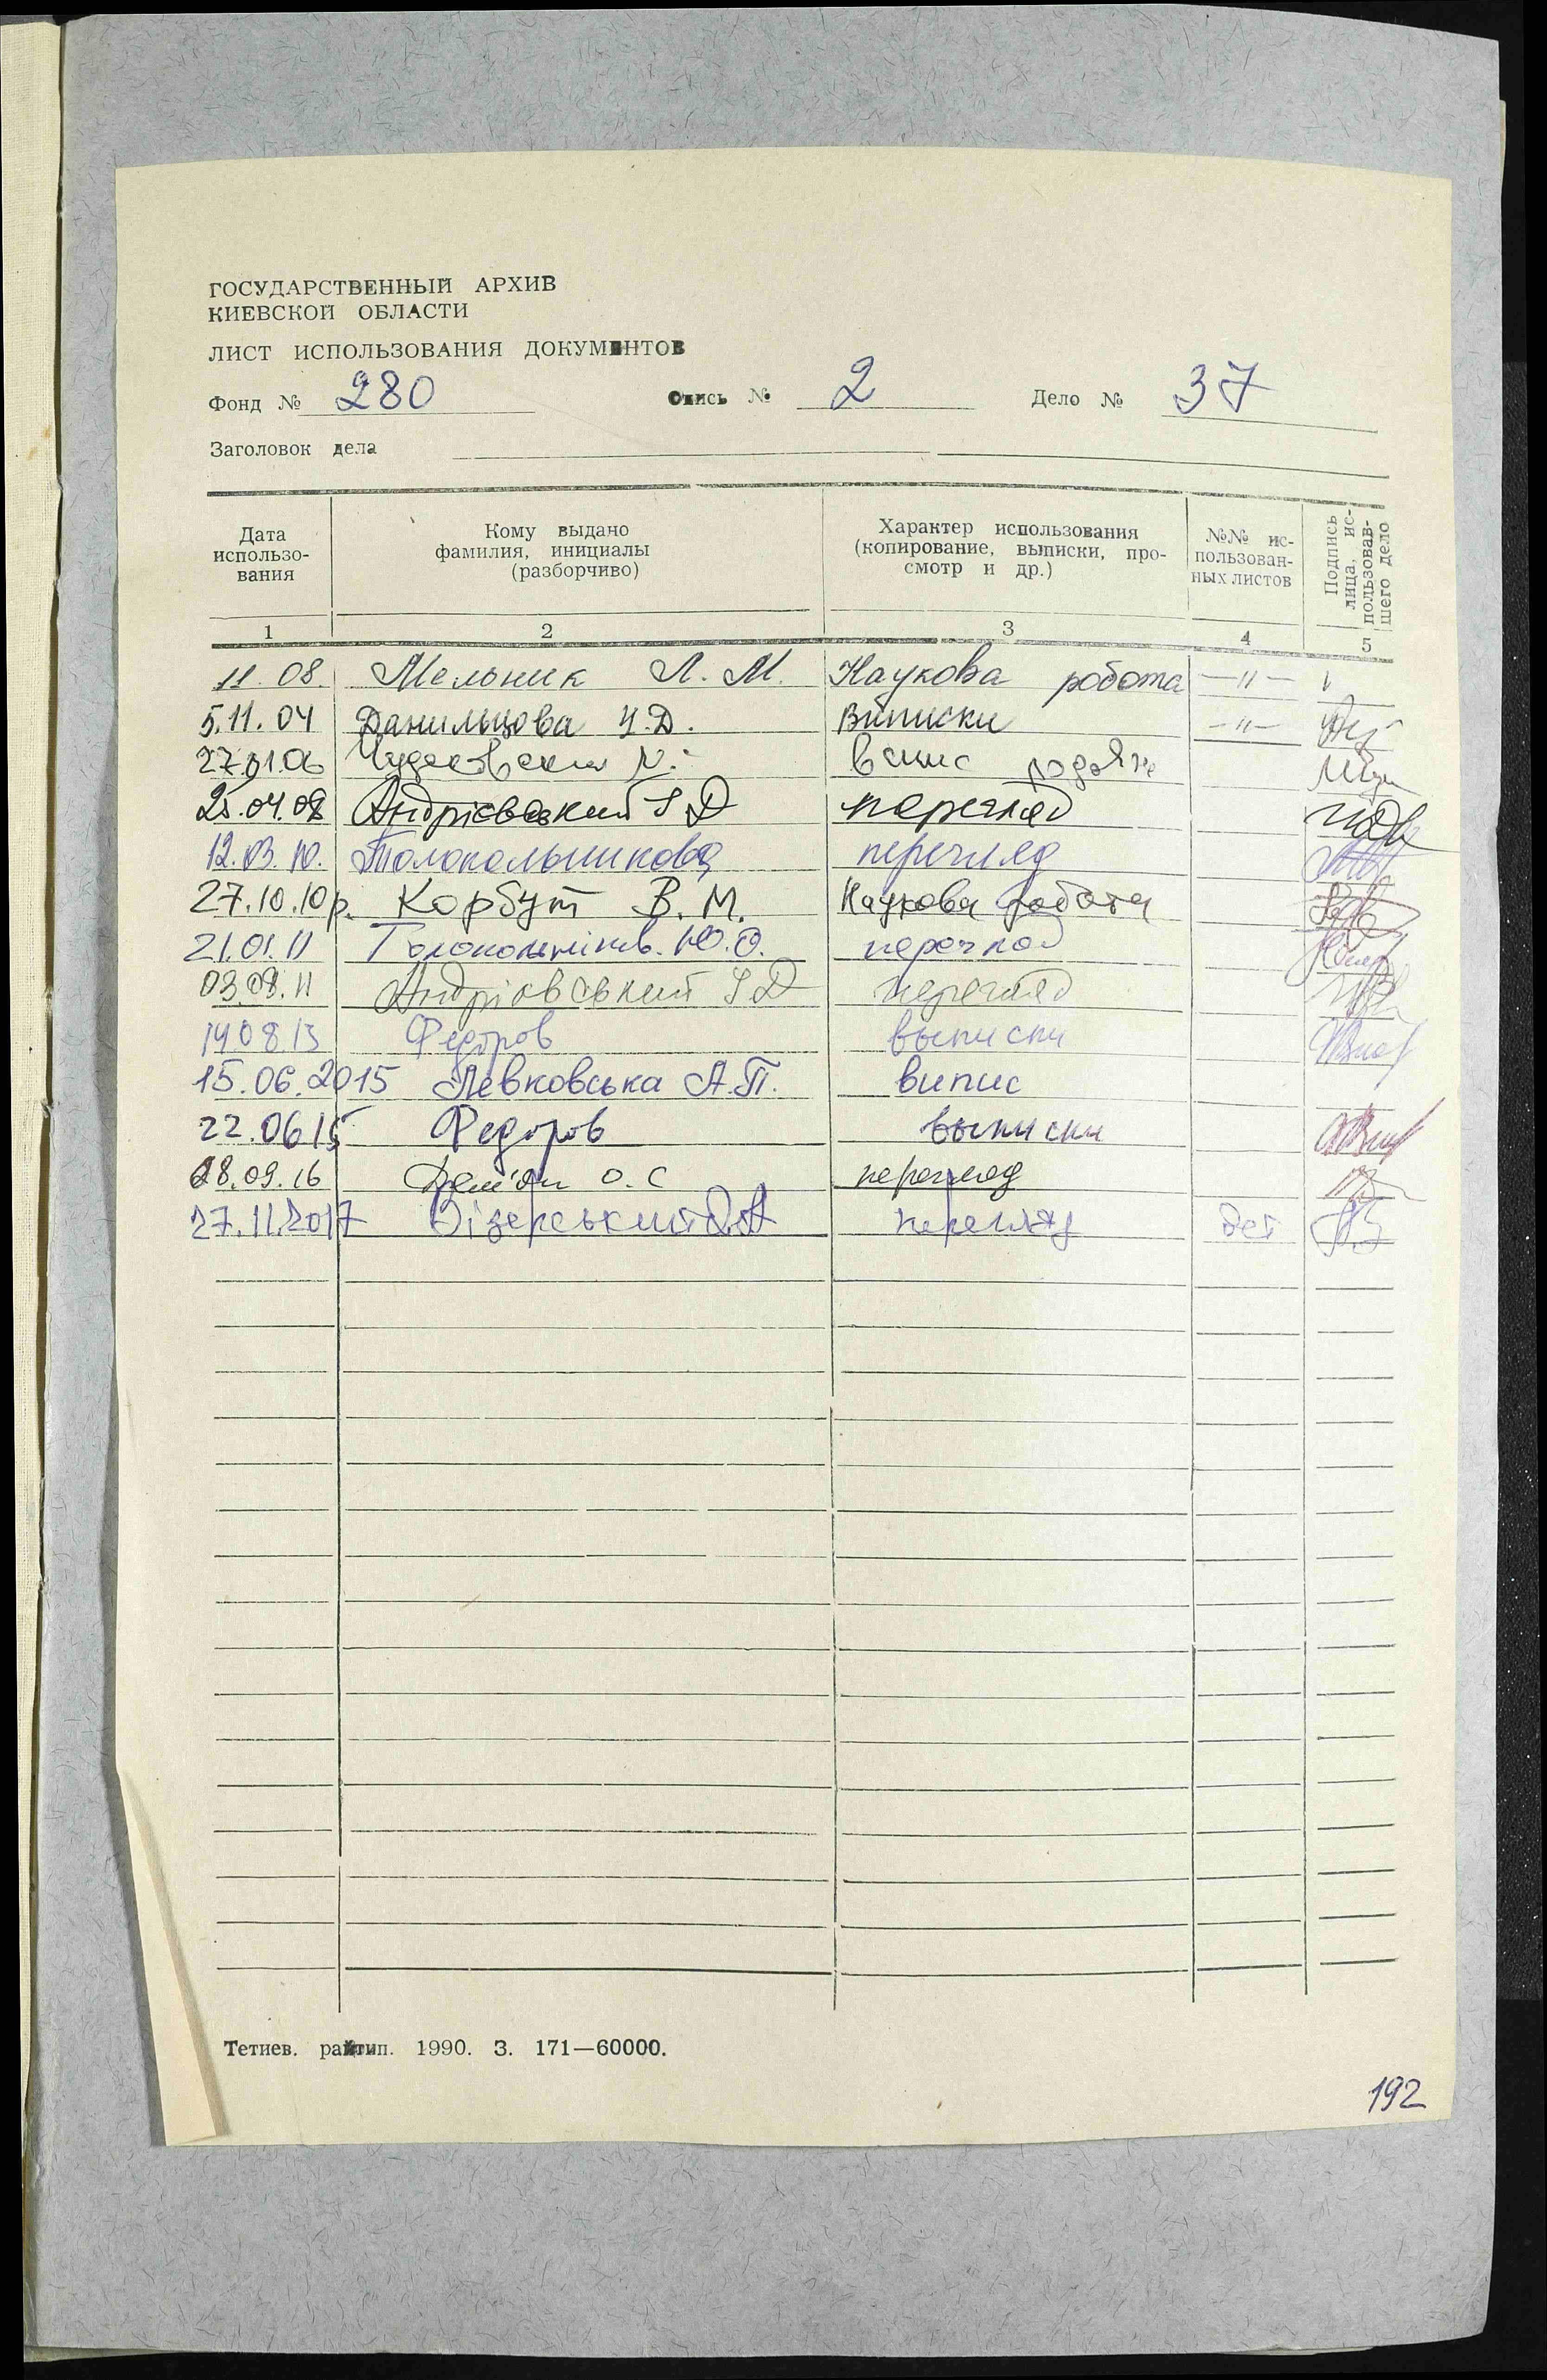 ГОСУДАРСТВЕННЫЙ АРХИВ
КИЕВСКОЙ ОБЛАСТИ
ЛИСТ ИСПОЛЬЗОВАНИЯ ДОКУМЕНТОВ
Фонд № 280 Опись № 2 Дело № 37
Заголовок дела
Дата использо-вания
Кому выдано фамилия, инициалы (разборчиво)
Характер использования (копирование, выписки, про-смотр и др.)
№№ ис-пользован-ных листов
Подпись лица, ис-пользовав-шего дело
1 2 3 4 5
11.08. Мельник Л. М. Наукова робота —"—
5.11.04 Данильцова Виписки —"—
27.01.06
25.04.08 Андрієвський І Д перегляд
12.03.10. Толокольникова перегляд
27.10.10р. Корбут В. М. Наукова робота
21.01.11 Ю.О. перегляд
03.08.11 Андрієвський І Д перегляд
14 08 13 Федоров выписки
15.06.2015 Левковська А.П. випис
22.06 15 Федоров выписки
28.09.16 Дем'ян О.С перегляд
27.11.2017 перегляд
Тетиев. райтип. 1990. З. 171—60000.
192